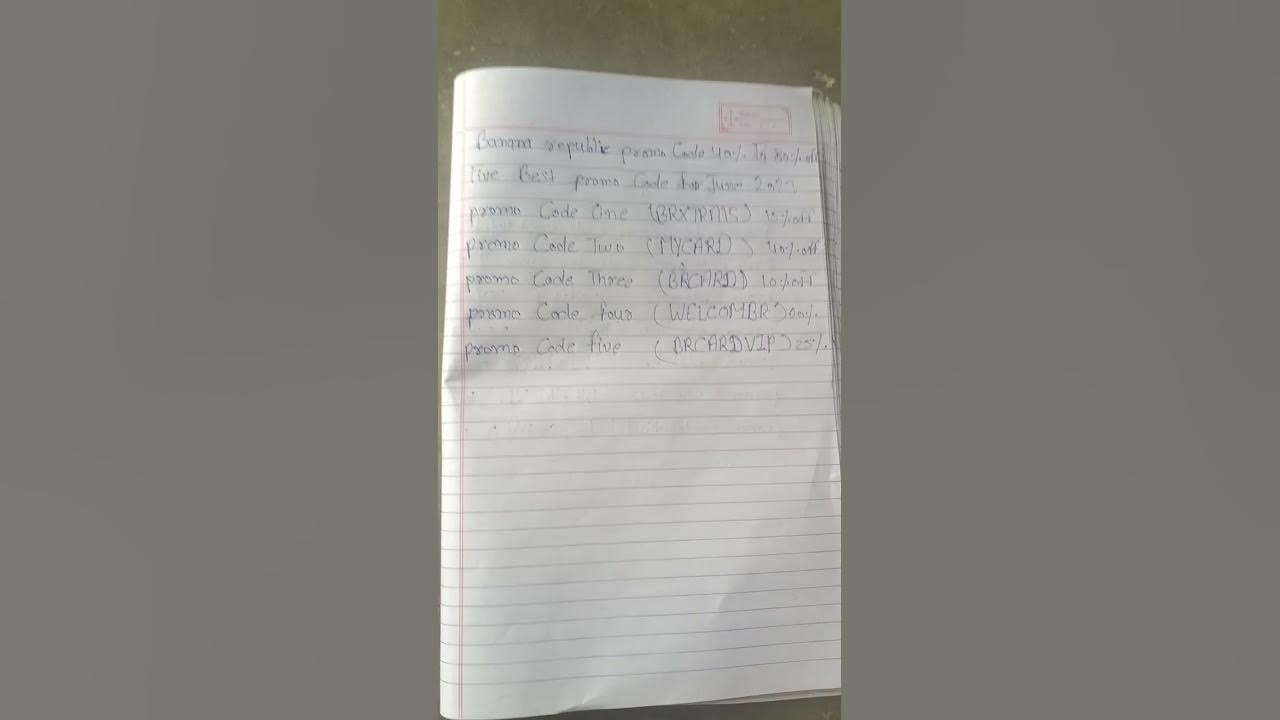 Banana republic promo Code 40% To 80% off
five Best promo Code for June 2023
promo Code One (BRXTRA15) 15% off
promo Code Two (MYCARD) 40% off
promo Code Three (BRCARD) 10% off
promo Code four (WELCOMBR)
promo Code five (BRCARDVIP) 25%